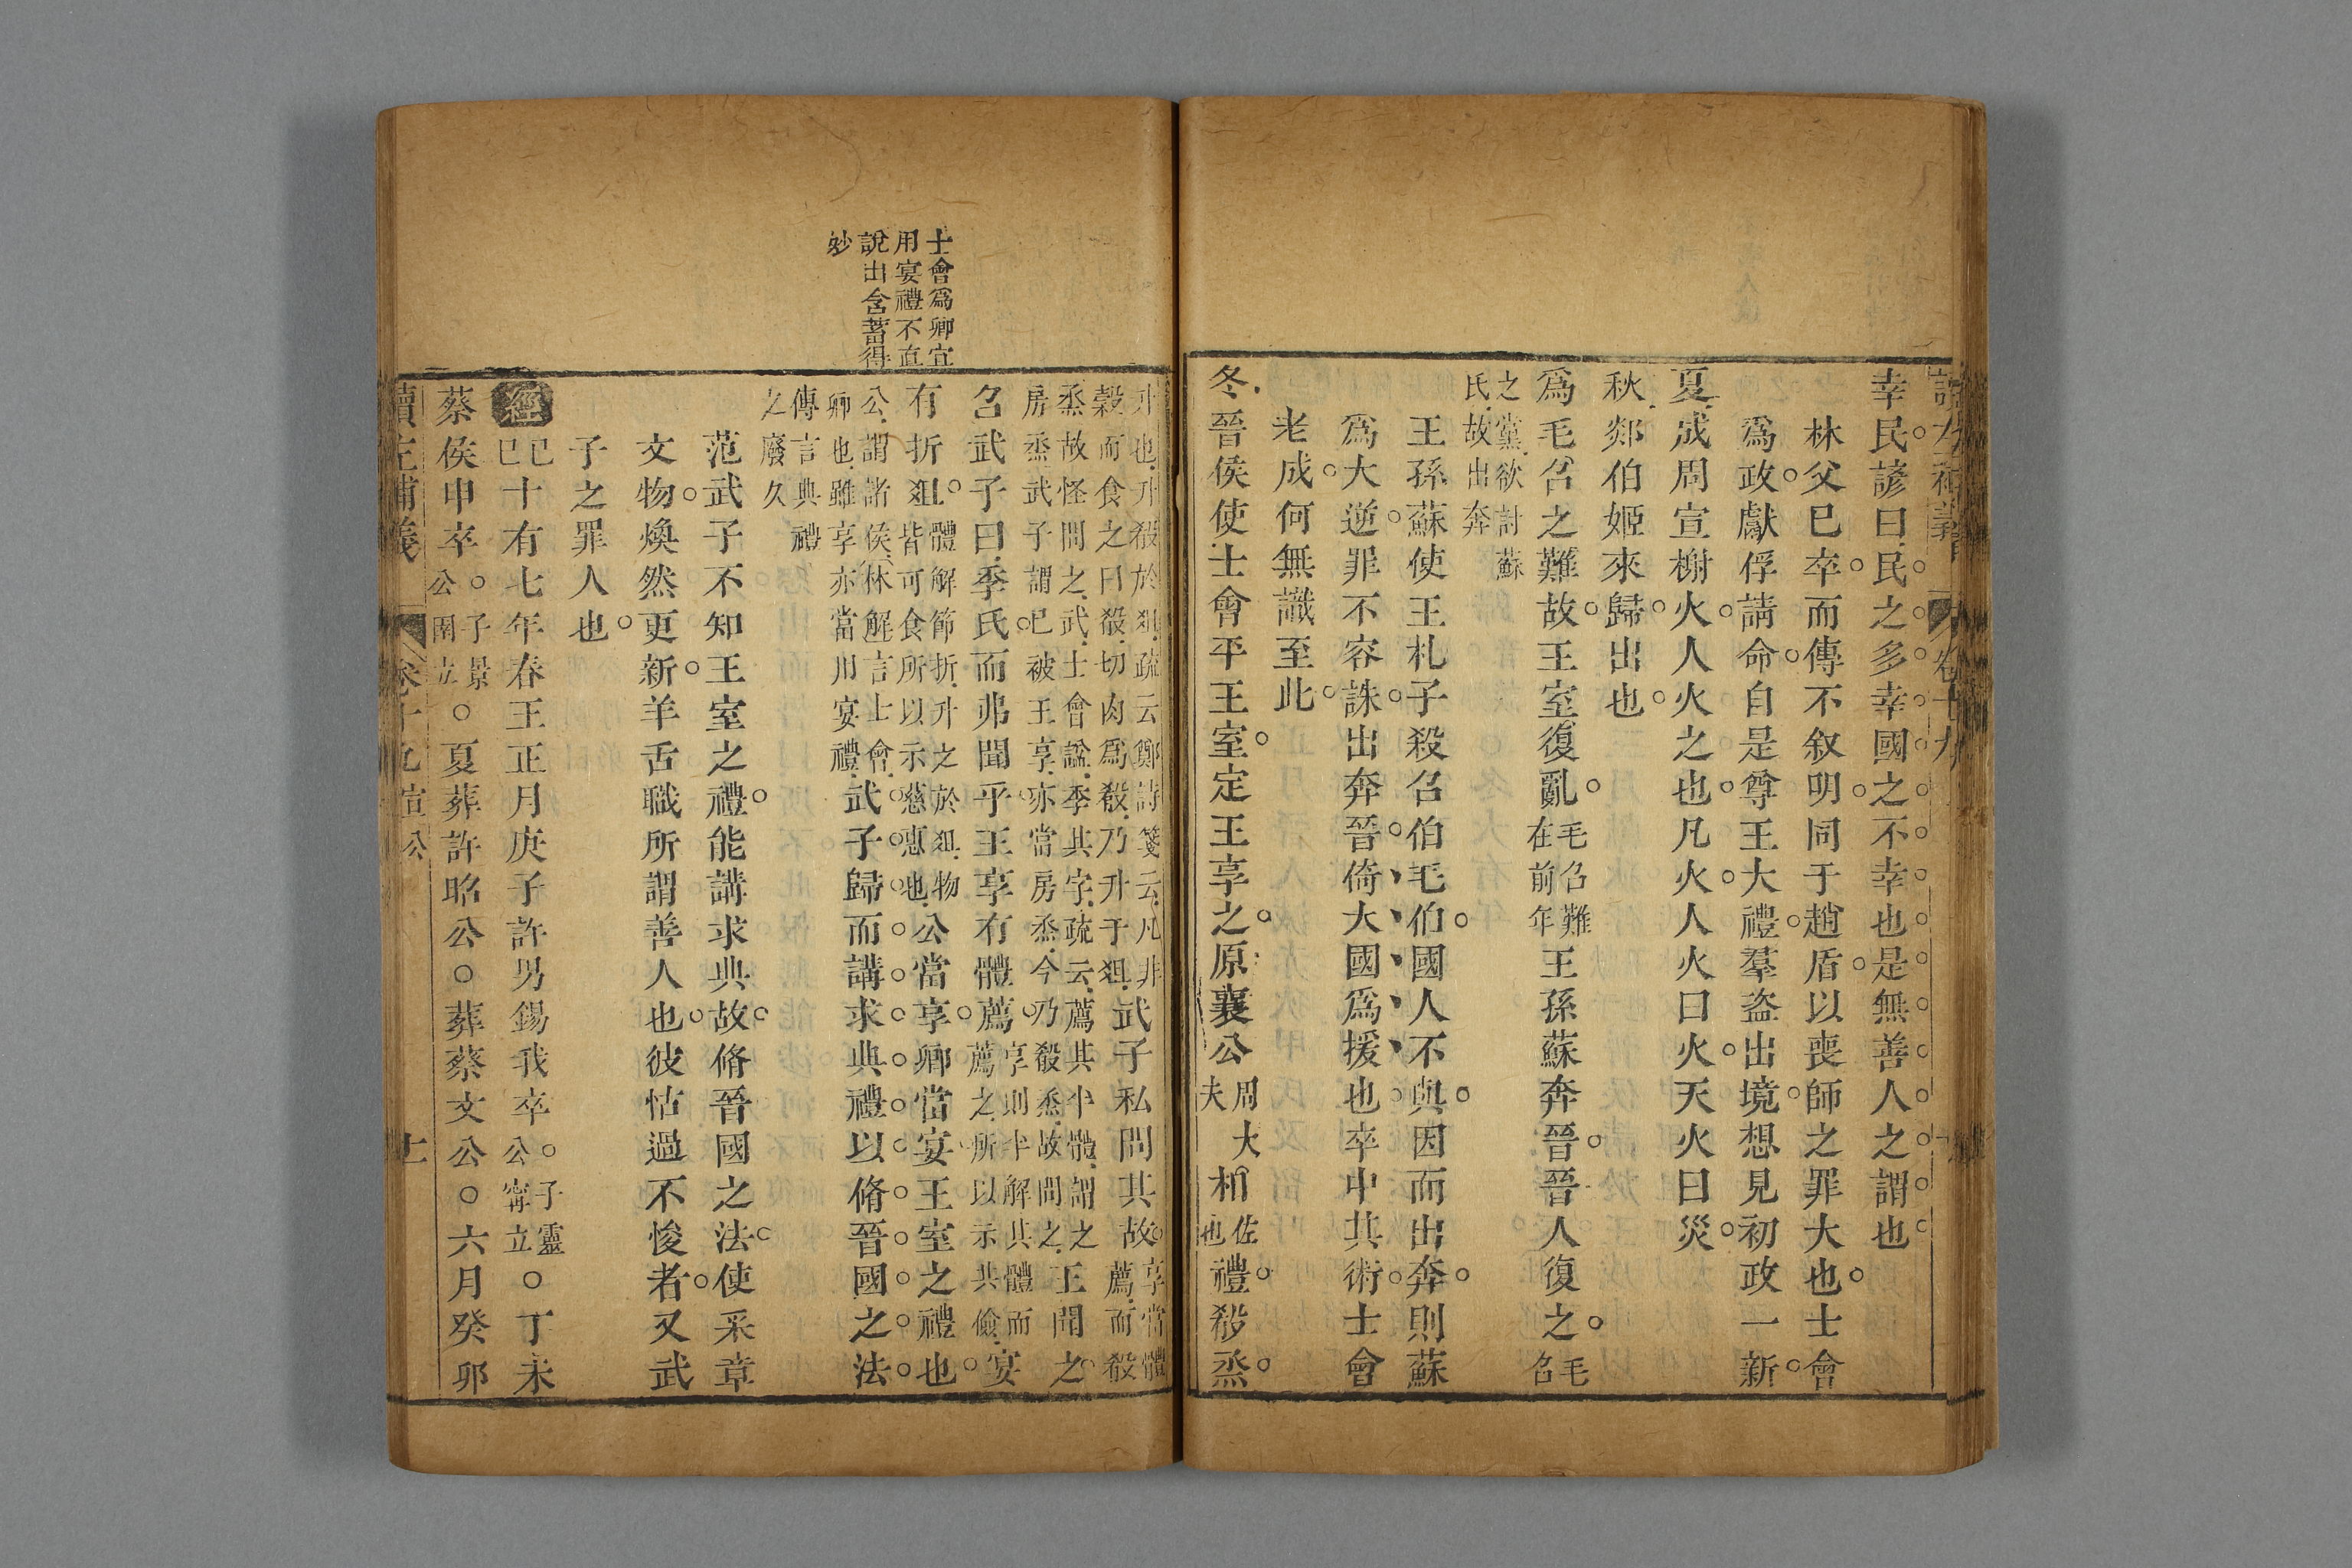 讀左補義 卷十九
幸民諺曰民之多幸國之不幸也是無善人之謂也
林父已卒而傳不叙明同于趙盾以喪師之罪大也士會
爲政獻俘請命自是尊王大禮羣盜出境想見初政一新
夏成周宣榭火人火之也凡火人火曰火天火曰災
秋郯伯姬來歸出也
爲毛召之難故王室復亂毛召難在前年王孫蘇奔晉晉人復之毛召
之黨欲討蘇氏故出奔
王孫蘇使王札子殺召伯毛伯國人不與因而出奔則蘇
爲大逆罪不容誅出奔晉倚大國爲援也卒中其術士會
老成何無識至此
冬晉侯使士會平王室定王享之原襄公周大夫相佐也禮殽烝
士會爲卿宜
用宴禮不直
說出含蓄得
妙
升也升殽於俎疏云鄭詩箋云凡非穀而食之曰殽切肉爲殽乃升于俎武子私問其故享當體薦而殽
烝故怪問之武士會謚季其字疏云薦其半體謂之房烝武子謂已被王享亦當房烝今乃殽烝故問之王聞之
召武子曰季氏而弗聞乎王享有體薦享則半解其體而薦之所以示共儉宴
有折俎體解節折升之於俎物皆可食所以示慈惠也公當享卿當宴王室之禮也
公謂諸侯林解言士會卿也雖享亦當用宴禮武子歸而講求典禮以脩晉國之法
傳言典禮之廢久
范武子不知王室之禮能講求典故脩晉國之法使采章
文物煥然更新羊舌職所謂善人也彼怙過不悛者又武
子之罪人也
經己巳十有七年春王正月庚子許男錫我卒子靈公甯立丁未
蔡侯申卒子景公固立夏葬許昭公葬蔡文公六月癸卯
讀左補義 卷十九宣公 十